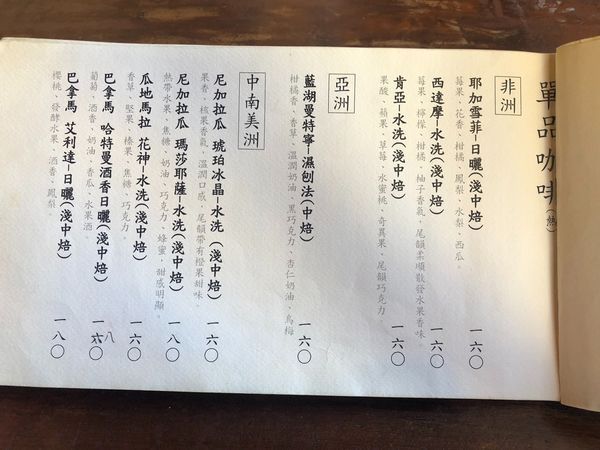 單品咖啡(熱)
非洲
耶加雪菲–日曬(淺中焙) 一六〇
莓果、花香、柑橘、鳳梨、水梨、西瓜。
西達摩–水洗(淺中焙) 一六〇
莓果、檸檬、柑橘、柚子香氣、尾韻柔順散發水果香味。
肯亞–水洗(淺中焙) 一六〇
果酸、蘋果、草莓、水蜜桃、奇異果、尾韻巧克力
亞洲
藍湖曼特寧–濕刨法(中焙) 一六〇
柑橘香、香草、溫潤奶油、黑巧克力、杏仁奶油、烏梅
中南美洲
尼加拉瓜 琥珀冰晶–水洗 (淺中焙) 一六〇
果香、核果香氣、溫潤口感、尾韻帶有橙果甜味。
尼加拉瓜 瑪莎耶薩–水洗(淺中焙) 一八〇
熱帶水果、焦糖、奶油、巧克力、蜂蜜、甜感明顯。
瓜地馬拉 花神–水洗(淺中焙) 一六〇
香草、堅果、榛果、焦糖、巧克力。
巴拿馬 哈特曼酒香日曬(淺中焙) 一六〇 八
葡萄、酒香、奶油、香瓜、水果酒。
巴拿馬 艾利達–日曬(淺中焙) 一八〇
櫻桃、發酵水果、酒香、鳳梨。